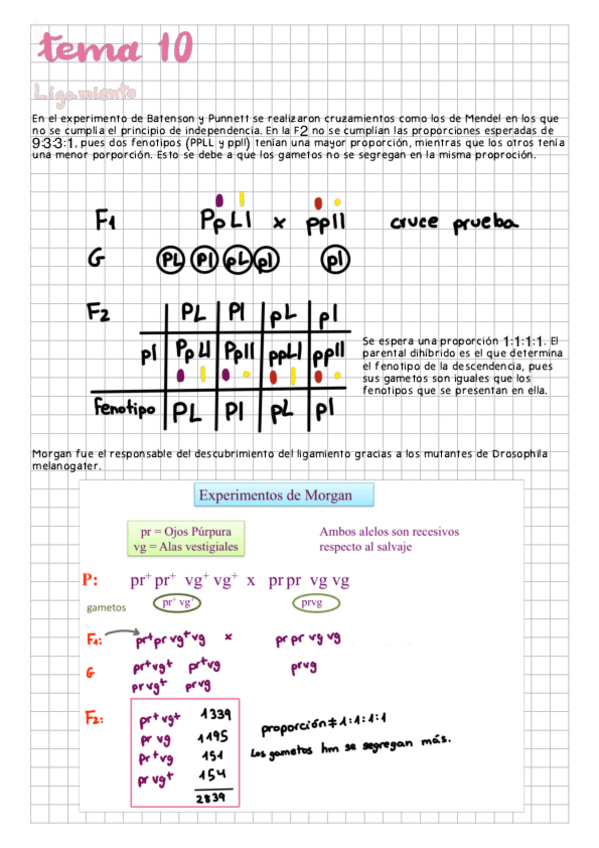 tema 10
Ligamiento
En el experimento de Batenson y Punnett se realizaron cruzamientos como los de Mendel en los que
no se cumplía el principio de independencia. En la F2 no se cumplían las proporciones esperadas de
9:3:3:1, pues dos fenotipos (PPLL y ppll) tenían una mayor proporción, mientras que los otros tenía
una menor porporción. Esto se debe a que los gametos no se segregan en la misma proproción.
F1 PpLl x ppll cruce prueba
G PL Pl pL pl pl
F2 PL Pl pL pl
pl PpLl Ppll ppLl ppll
Fenotipo PL Pl pL pl
Se espera una proporción 1:1:1:1. El
parental dihíbrido es el que determina
el fenotipo de la descendencia, pues
sus gametos son iguales que los
fenotipos que se presentan en ella.
Morgan fue el responsable del descubrimiento del ligamiento gracias a los mutantes de Drosophila
melanogater.
Experimentos de Morgan
pr = Ojos Púrpura
vg = Alas vestigiales
Ambos alelos son recesivos
respecto al salvaje
P: pr+ pr+ vg+ vg+ x pr pr vg vg
gametos pr+ vg+ prvg
F1: pr+pr vg+vg x pr pr vg vg
G pr+vg+ pr+vg prvg
prvg+ prvg
F2: pr+vg+ 1339
pr vg 1195
Pr+vg 151
pr vg+ 154
2839
proporción ≠ 1:1:1:1
Los gametos hm se segregan más.